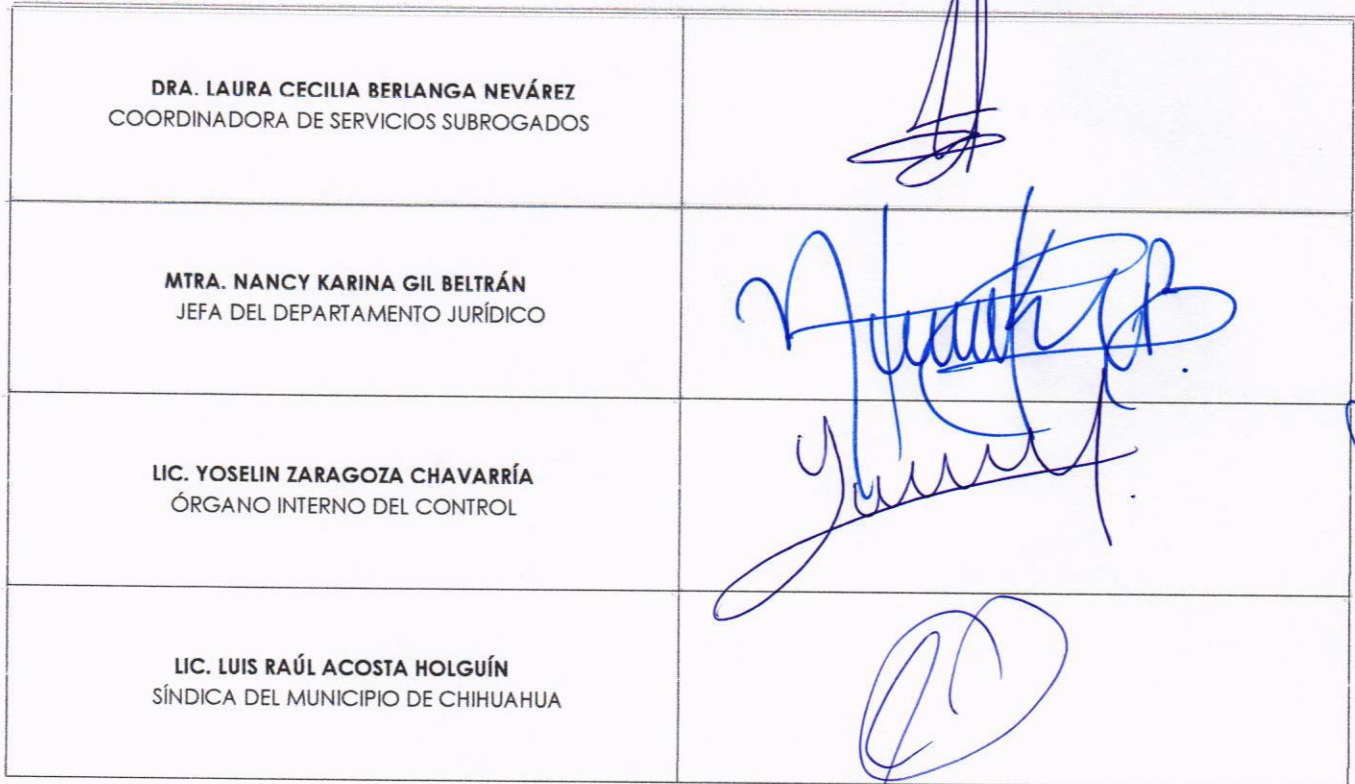 DRA. LAURA CECILIA BERLANGA NEVÁREZ
COORDINADORA DE SERVICIOS SUBROGADOS
MTRA. NANCY KARINA GIL BELTRÁN
JEFA DEL DEPARTAMENTO JURÍDICO
LIC. YOSELIN ZARAGOZA CHAVARRÍA
ÓRGANO INTERNO DEL CONTROL
LIC. LUIS RAÚL ACOSTA HOLGUÍN
SÍNDICA DEL MUNICIPIO DE CHIHUAHUA